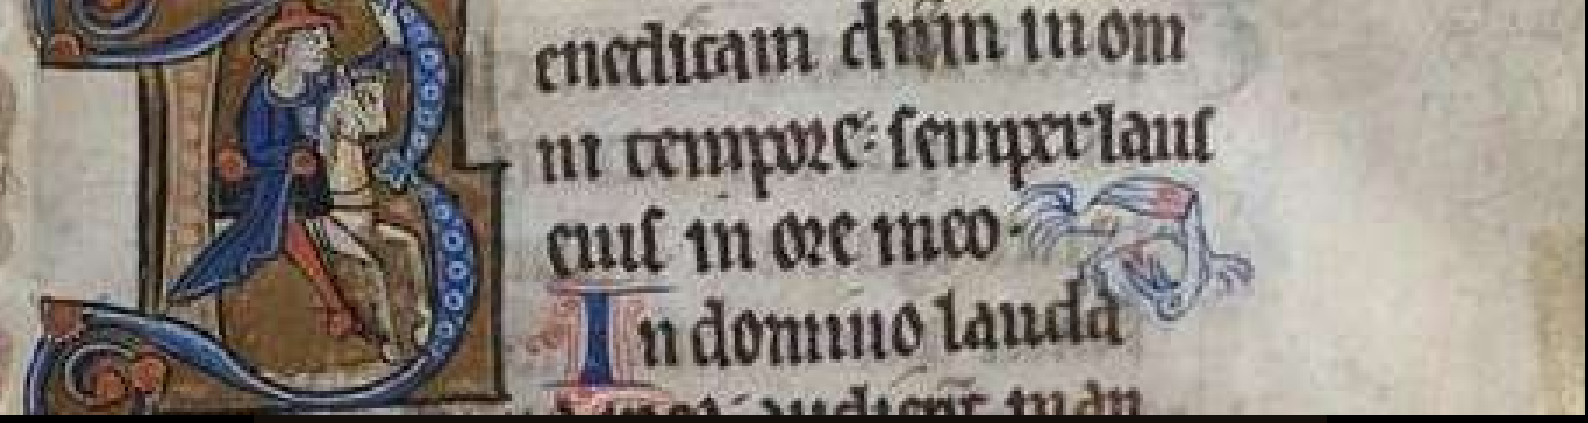 Benedicam dn̄m in om
ni tempore: semper laus
eius in ore meo.
In domino lauda
audient man